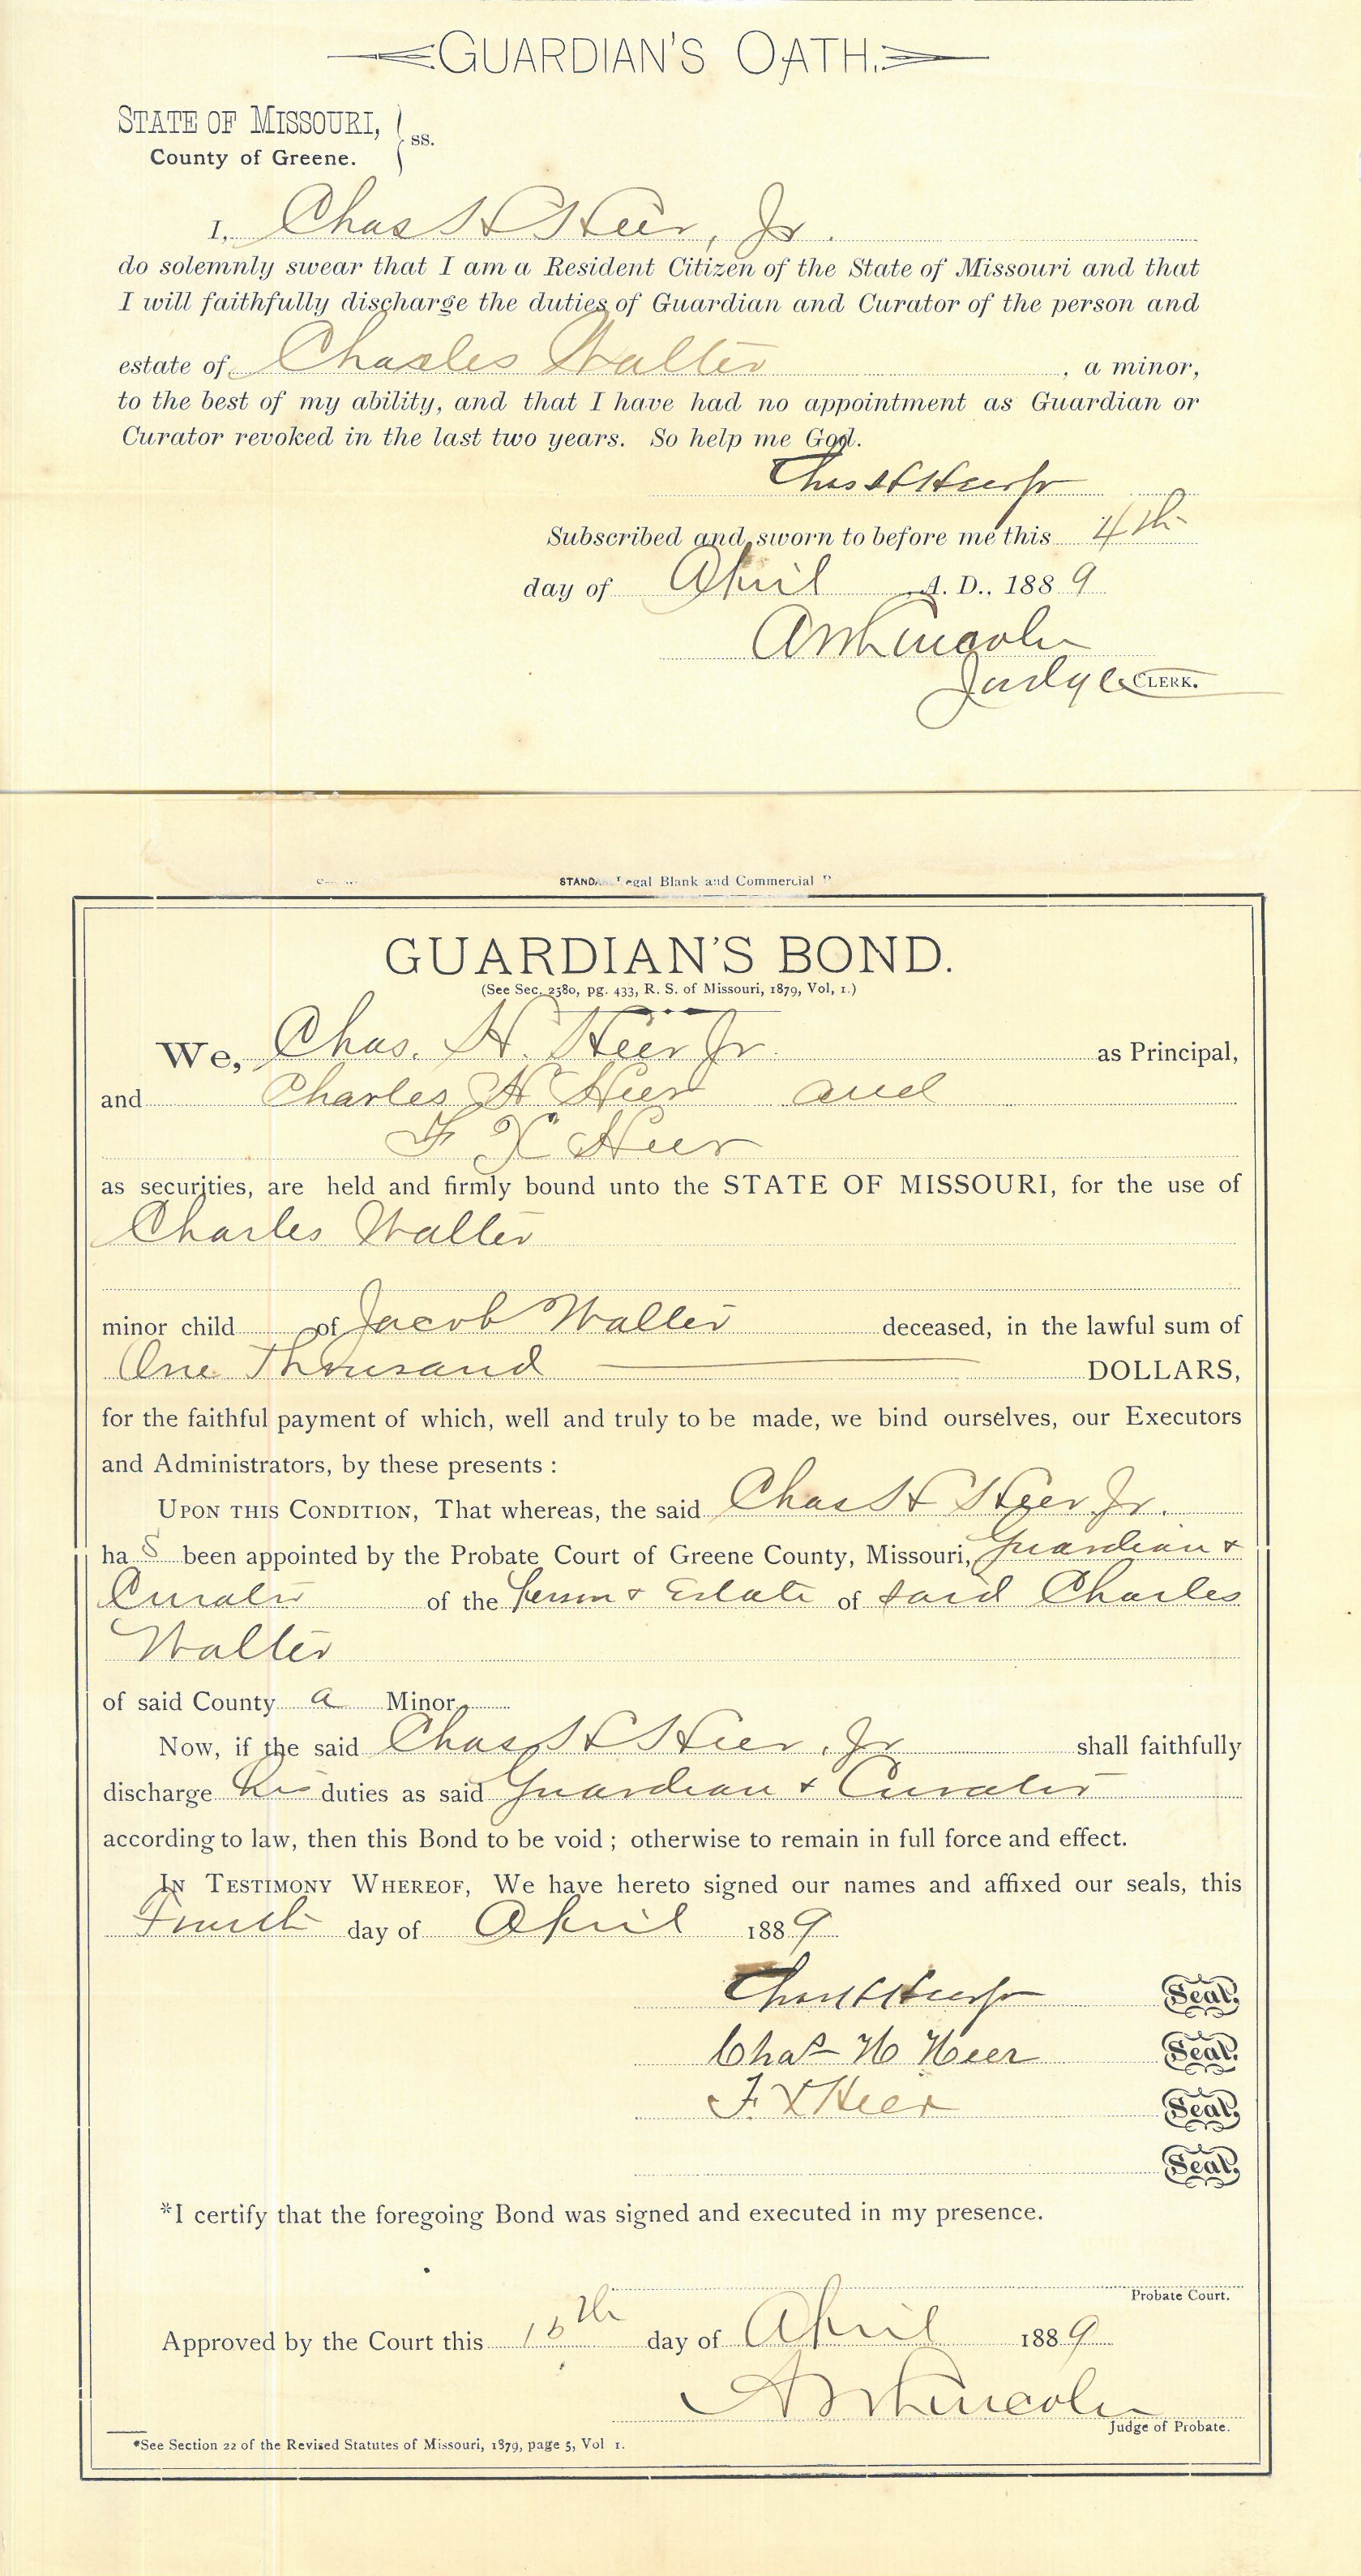 GUARDIAN'S OATH.
STATE OF MISSOURI, } ss.
County of Greene.
I, Chas H Heer, Jr.
do solemnly swear that I am a Resident Citizen of the State of Missouri and that
I will faithfully discharge the duties of Guardian and Curator of the person and
estate of Charles Walter, a minor,
to the best of my ability, and that I have had no appointment as Guardian or
Curator revoked in the last two years. So help me God.
Chas H Heer Jr
Subscribed and sworn to before me this 4th
day of April A. D., 1889
Lincoln
Judge CLERK.
Legal Blank and Commercial
GUARDIAN'S BOND.
(See Sec. 2580, pg. 433, R. S. of Missouri, 1879, Vol, 1.)
We, Chas. H. Heer Jr. as Principal,
and Charles H Heer and
F X Heer
as securities, are held and firmly bound unto the STATE OF MISSOURI, for the use of
Charles Walter
minor child of Jacob Walter deceased, in the lawful sum of
One Thousand DOLLARS,
for the faithful payment of which, well and truly to be made, we bind ourselves, our Executors
and Administrators, by these presents :
UPON THIS CONDITION, That whereas, the said Chas H Heer Jr.
has been appointed by the Probate Court of Greene County, Missouri, Guardian &
Curator of the Person & Estate of said Charles
Walter
of said County a Minor
Now, if the said Chas H Heer, Jr shall faithfully
discharge his duties as said Guardian & Curator
according to law, then this Bond to be void ; otherwise to remain in full force and effect.
IN TESTIMONY WHEREOF, We have hereto signed our names and affixed our seals, this
Fourth day of April 1889
Chas H Heer Jr Seal.
Chas H Heer Seal.
F. X Heer Seal.
Seal.
*I certify that the foregoing Bond was signed and executed in my presence.
Probate Court.
Approved by the Court this th day of April 1889
Lincoln
Judge of Probate.
*See Section 22 of the Revised Statutes of Missouri, 1879, page 5, Vol 1.